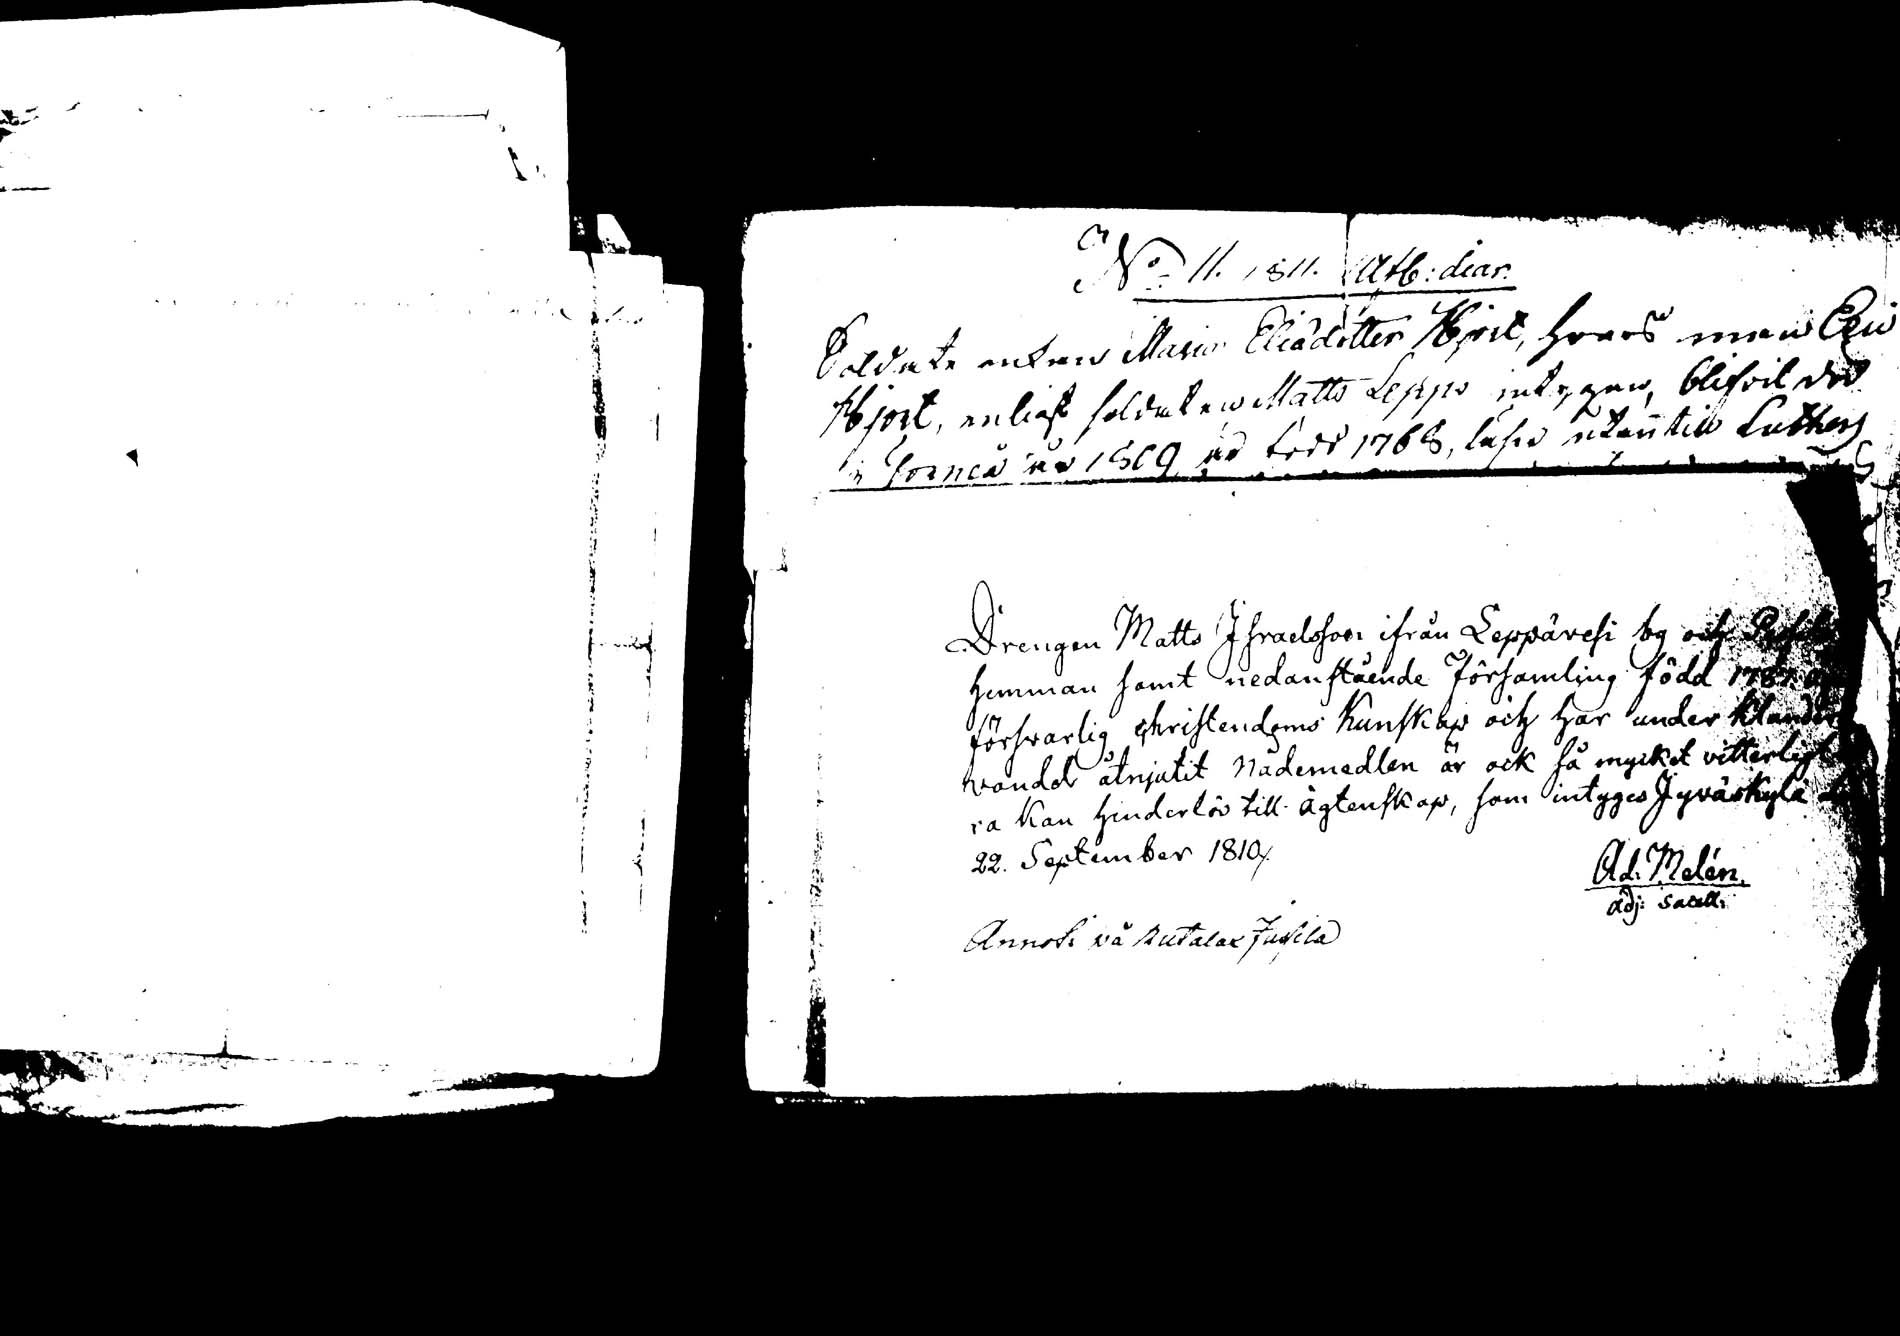 No 11. 1811. Att: diar.
Soldats enkan Maria Eliædotter Hjort, hvars man Eric
Hjort, enligt soldaten Matts Leppos intygan, blifvit död
i Torneå år 1809 är född 1768, läser utantill Luthers
Drengen Matts Jsraelsson ifrån Leppävesi by och
hemman samt nedanstående Församling född 1787. äg
försvarlig christendoms kunskap och har under klander
vandel åtnjutit nådemedlen är ock så mycket vitterligt
ra kan hinderlös till ägtenskap, som intyges Jyväskylä d
22. September 1810.
Ad: Melén.
adj: Sacell:
Annots på Rutalax Jussila